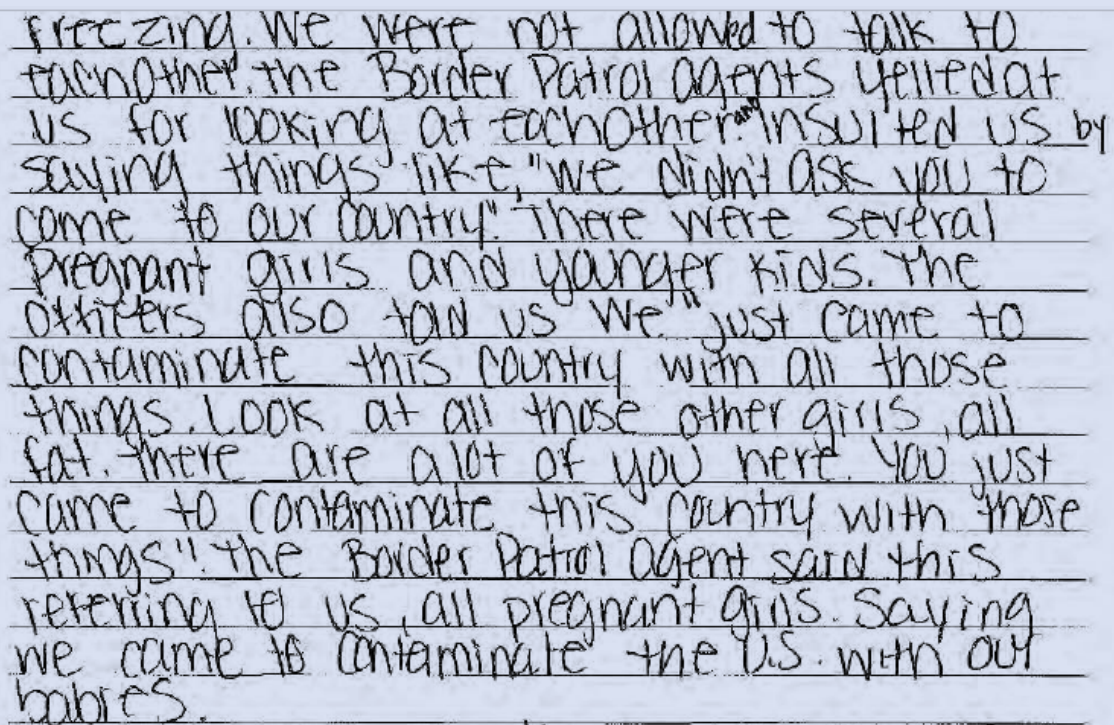 freezing. We were not allowed to talk to
eachother. the Border Patrol agents yelled at
us for looking at eachother and insulted us by
saying things like, "we didn't ask you to
come to our country". There were several
pregnant girls and younger kids. The
officers also told us we "just came to
contaminate this country with all those
things. Look at all those other girls, all
fat. there are alot of you here. You just
came to contaminate this country with those
things". The Border Patrol Agent said this
referring to us, all pregnant girls. Saying
we came to contaminate the U.S. with our
babies.